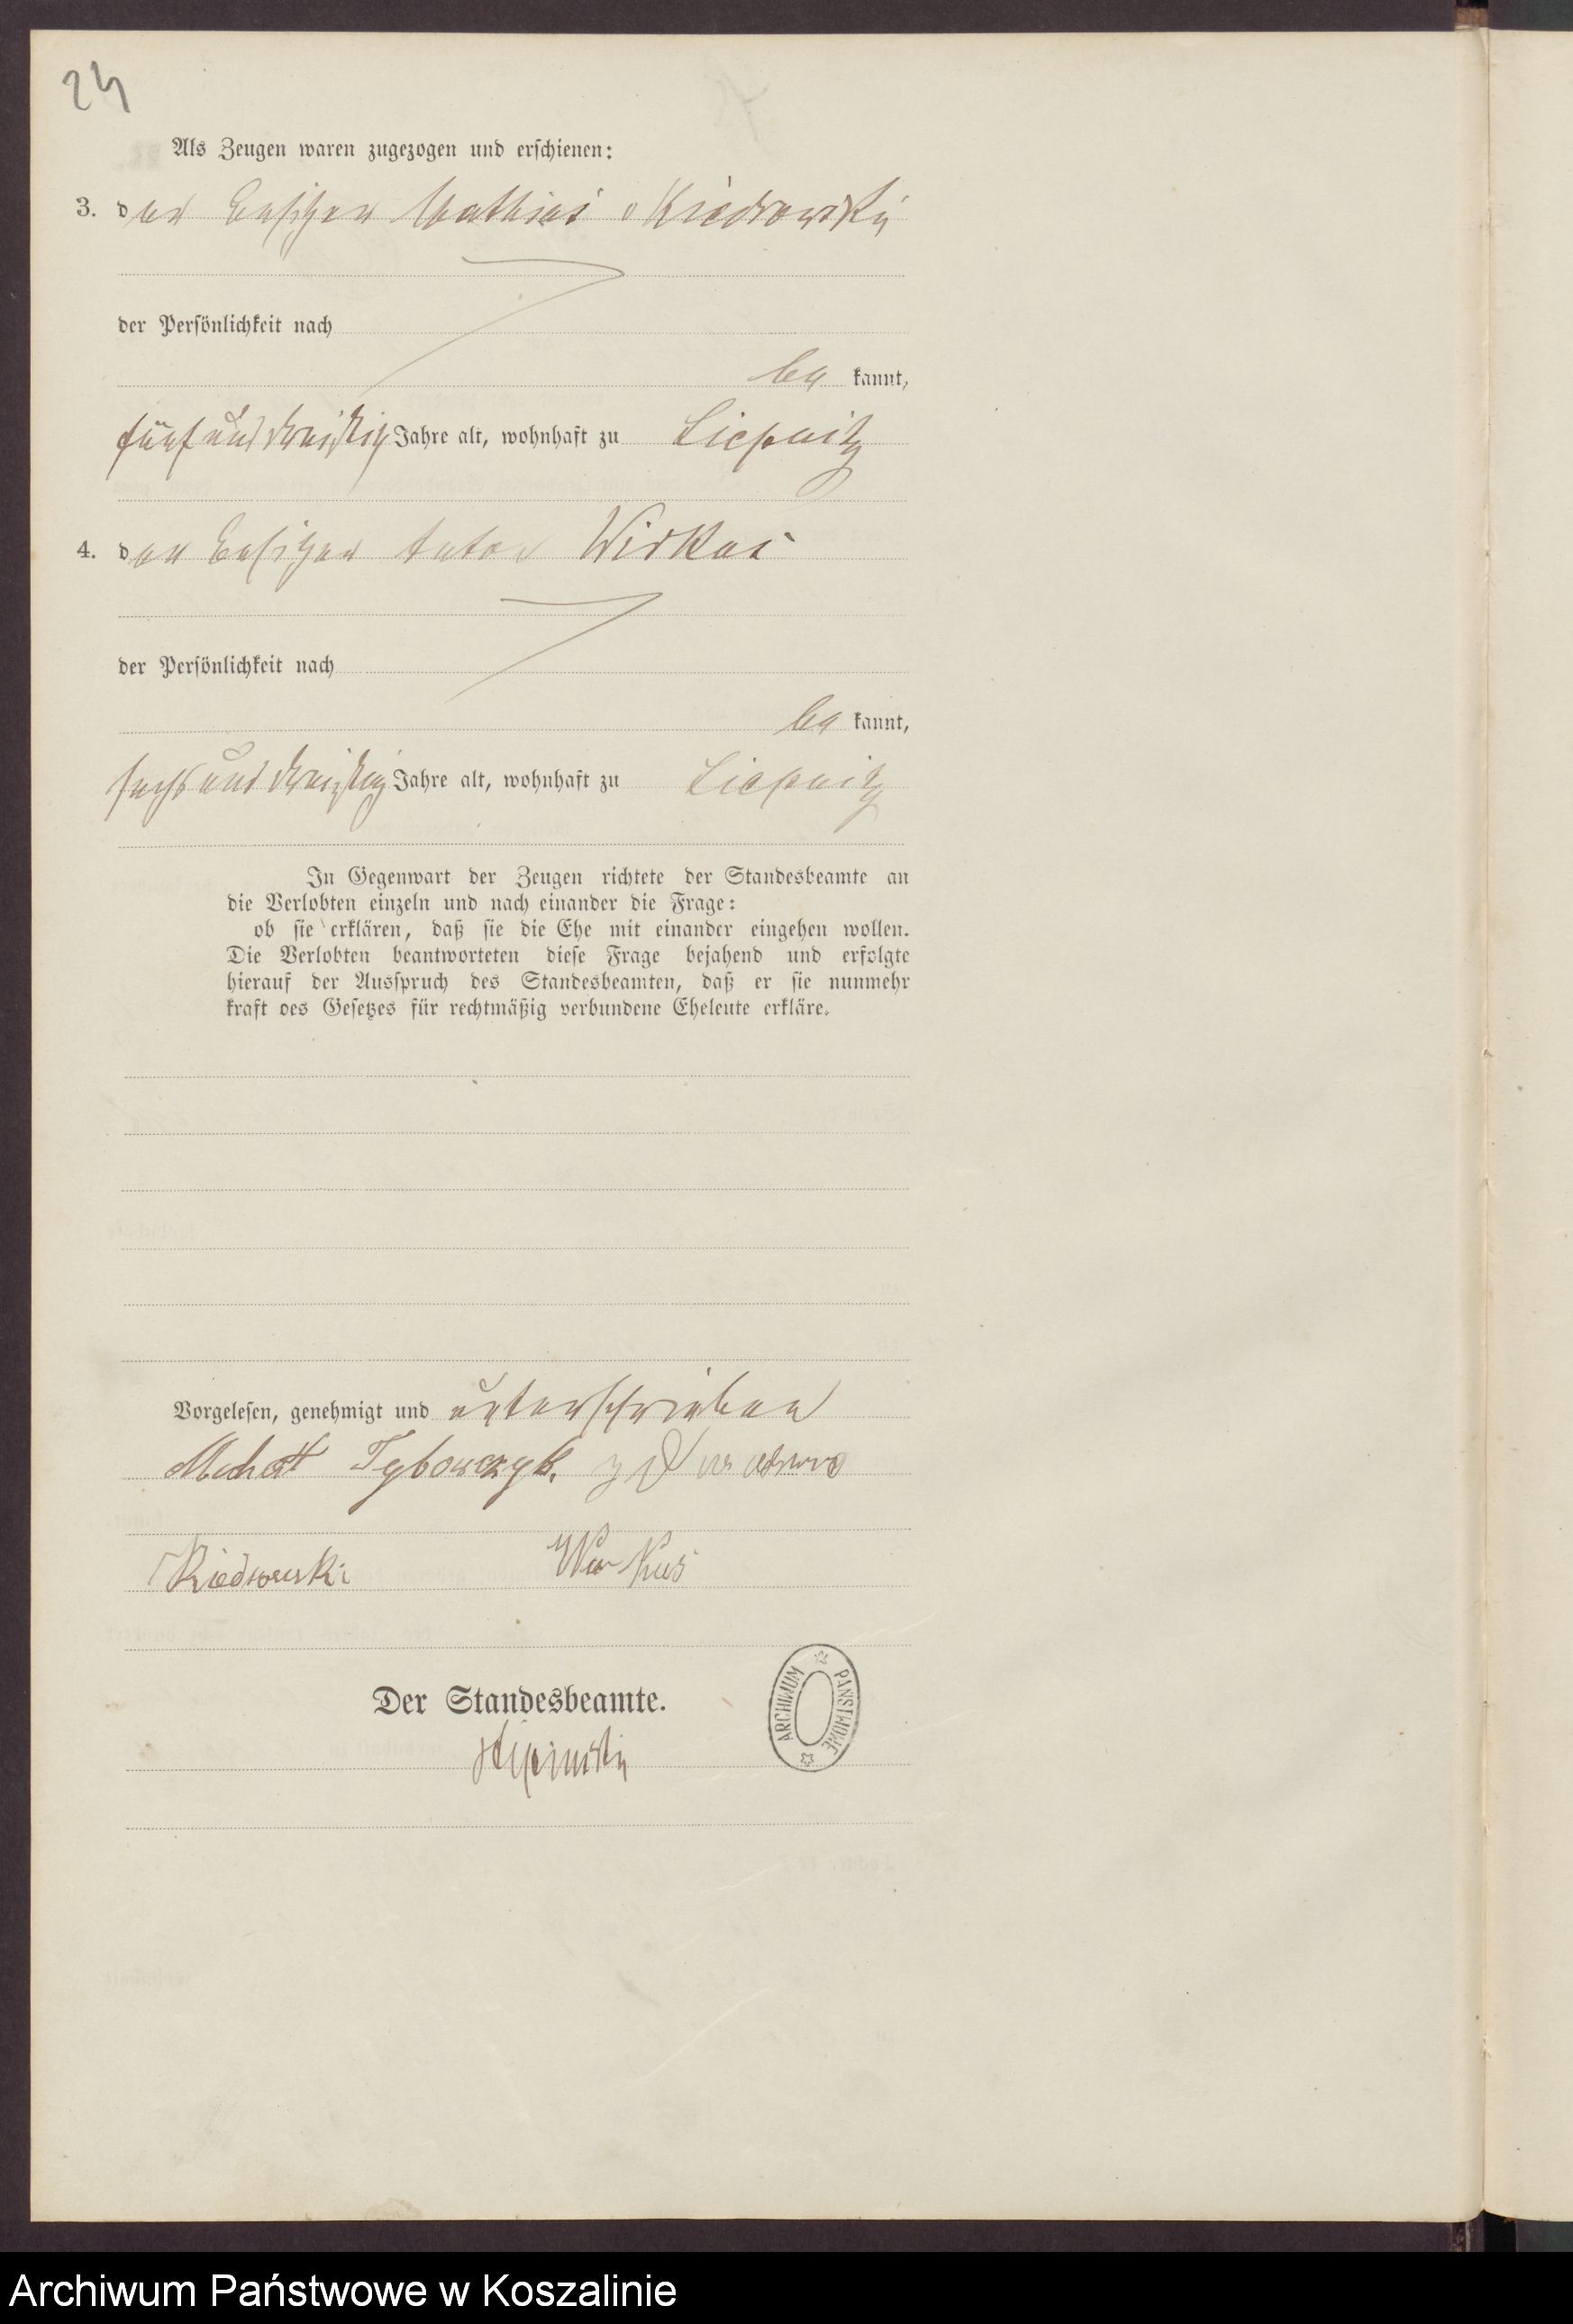 24
Als Zeugen waren zugezogen und erschienen:
3. der Besitzer Mathias Kiedrowski
der Persönlichkeit nach
be kannt,
fünf und dreißig Jahre alt, wohnhaft zu Liepnitz
4. der Besitzer Anton Wirkus
der Persönlichkeit nach
be kannt,
sechs und dreißig Jahre alt, wohnhaft zu Liepnitz
In Gegenwart der Zeugen richtete der Standesbeamte an
die Verlobten einzeln und nach einander die Frage:
ob sie erklären, daß sie die Ehe mit einander eingehen wollen.
Die Verlobten beantworteten diese Frage bejahend und erfolgte
hierauf der Ausspruch des Standesbeamten, daß er sie nunmehr
kraft des Gesetzes für rechtmäßig verbundene Eheleute erkläre.
Vorgelesen, genehmigt und unterschrieben
Tyborczyk.
Kiedrowski Wirkus
Der Standesbeamte.
ARCHIWUM PAŃSTWOWE
Archiwum Państwowe w Koszalinie